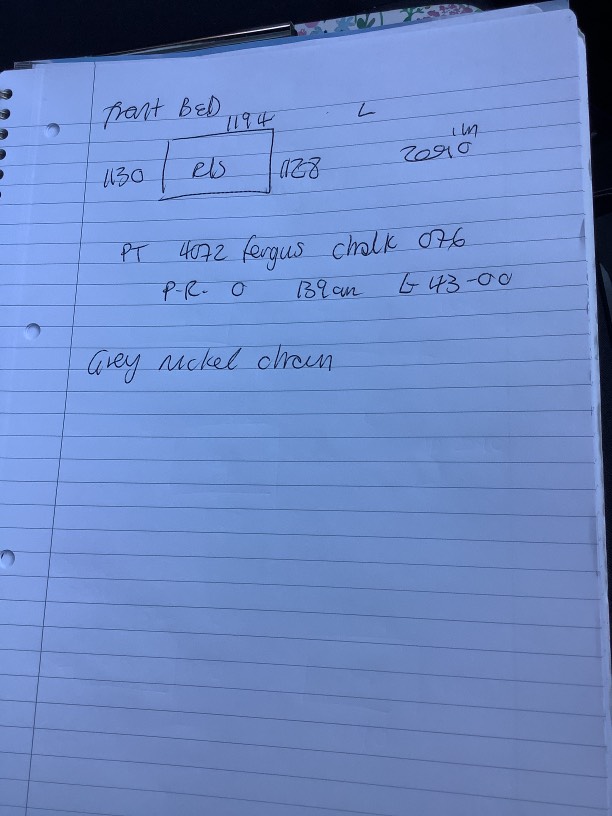 Front BED L
1194
1 in
1130 els 1128 2090
PT 4072 fergus chalk 076
P.R. 0 139cm £43-00
Grey nickel chain